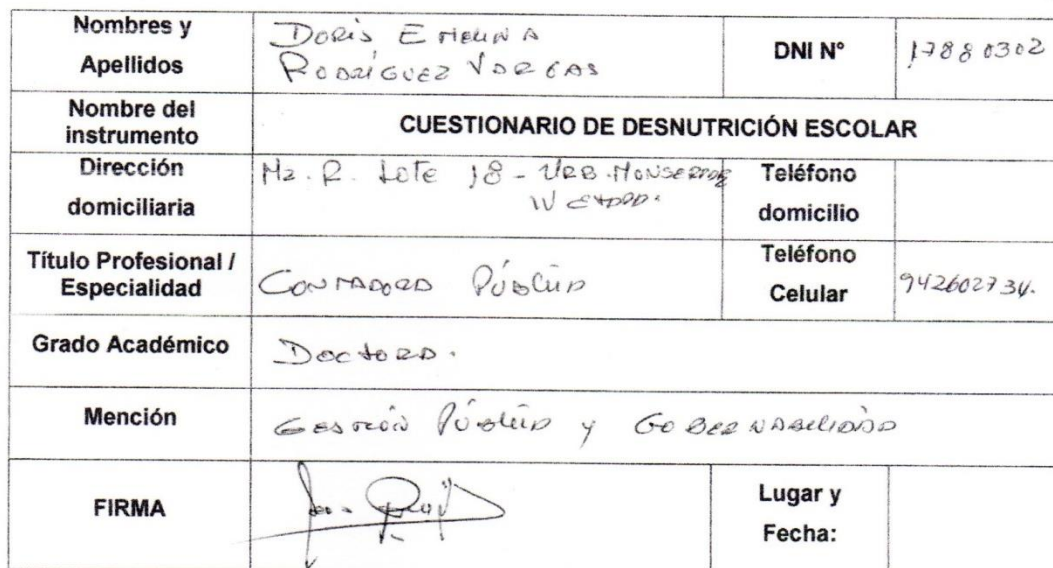 Nombres y Apellidos
DORIS EMELINA
RODRÍGUEZ VARGAS
DNI N°
17880302
Nombre del instrumento
CUESTIONARIO DE DESNUTRICIÓN ESCOLAR
Dirección domiciliaria
Mz. R. LOTE 18 - URB. MONSERRATE
IV ETAPA.
Teléfono domicilio
Título Profesional / Especialidad
CONTADORA PÚBLICA
Teléfono Celular
942602734.
Grado Académico
DOCTORA.
Mención
GESTIÓN PÚBLICA y GOBERNABILIDAD
FIRMA
Lugar y Fecha: